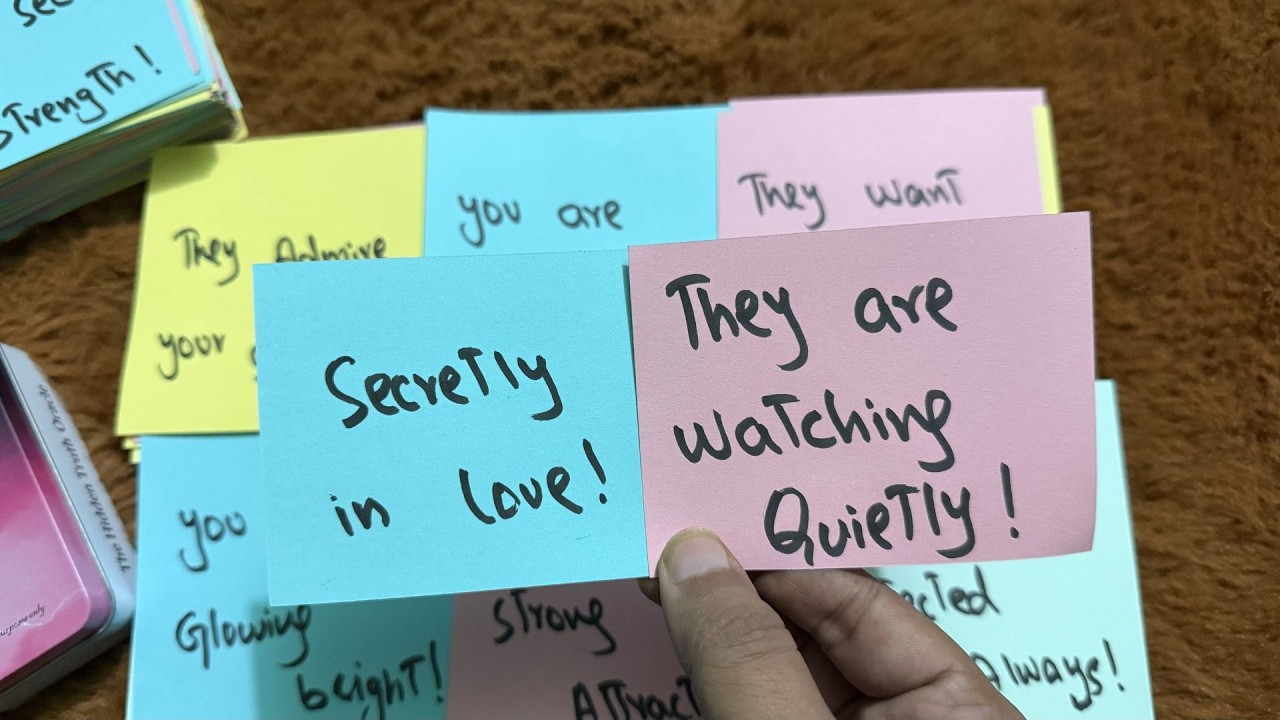 see
strength!
They Admire
your
you are
They want
Secretly
in love!
They are
watching
Quietly!
you
Glowing
beight!
strong
Attract
ected
Always!
The Hidden Truth Oracle